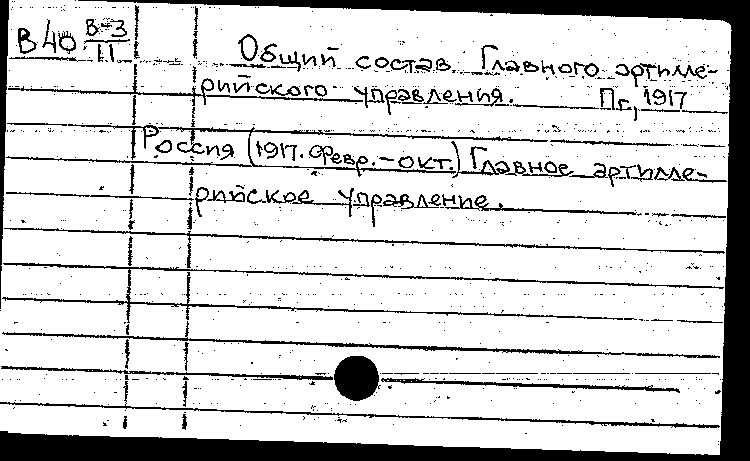 В 40 В-3
11
Общий состав Главного артилле-
рийского управления. Пг, 1917
Россия (1917. Февр.-окт.) Главное артилле-
рийское управление.